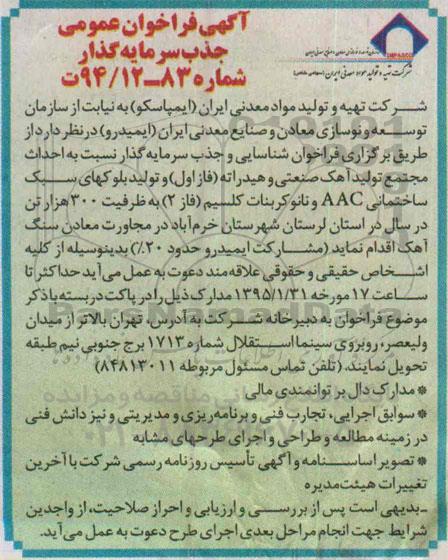 آگهی فراخوان عمومی
جذب سرمایه گذار
شماره ۸۳ــ۹۴/۱۲ت
IMPASCO
شرکت تهیه و تولید مواد معدنی ایران (سهامی خاص)
شرکت تهیه و تولید مواد معدنی ایران (ایمپاسکو) به نیابت از سازمان
توسعه و نوسازی معادن و صنایع معدنی ایران (ایمیدرو) در نظر دارد از
طریق برگزاری فراخوان شناسایی و جذب سرمایه گذار نسبت به احداث
مجتمع تولید آهک صنعتی و هیدراته (فاز اول) و تولید بلوکهای سبک
ساختمانی AAC و نانوکربنات کلسیم (فاز ۲) به ظرفیت ۳۰۰ هزار تن
در سال در استان لرستان شهرستان خرم‌آباد در مجاورت معادن سنگ
آهک اقدام نماید (مشارکت ایمیدرو حدود ۲۰٪) بدینوسیله از کلیه
اشخاص حقیقی و حقوقی علاقه‌مند دعوت به عمل می آید حداکثر تا
ساعت ۱۷ مورخه ۱۳۹۵/۱/۳۱ مدارک ذیل را در پاکت دربسته با ذکر
موضوع فراخوان به دبیرخانه شرکت به آدرس، تهران بالاتر از میدان
ولیعصر، روبروی سینما استقلال شماره ۱۷۱۳ برج جنوبی نیم طبقه
تحویل نمایند. (تلفن تماس مسئول مربوطه ۸۴۸۱۳۰۱۱)
* مدارک دال بر توانمندی مالی
* سوابق اجرایی، تجارب فنی و برنامه‌ریزی و مدیریتی و نیز دانش فنی
در زمینه مطالعه و طراحی و اجرای طرحهای مشابه
* تصویر اساسنامه و آگهی تأسیس روزنامه رسمی شرکت با آخرین
تغییرات هیئت‌مدیره
ـ بدیهی است پس از بررسی و ارزیابی و احراز صلاحیت، از واجدین
شرایط جهت انجام مراحل بعدی اجرای طرح دعوت به عمل می آید.